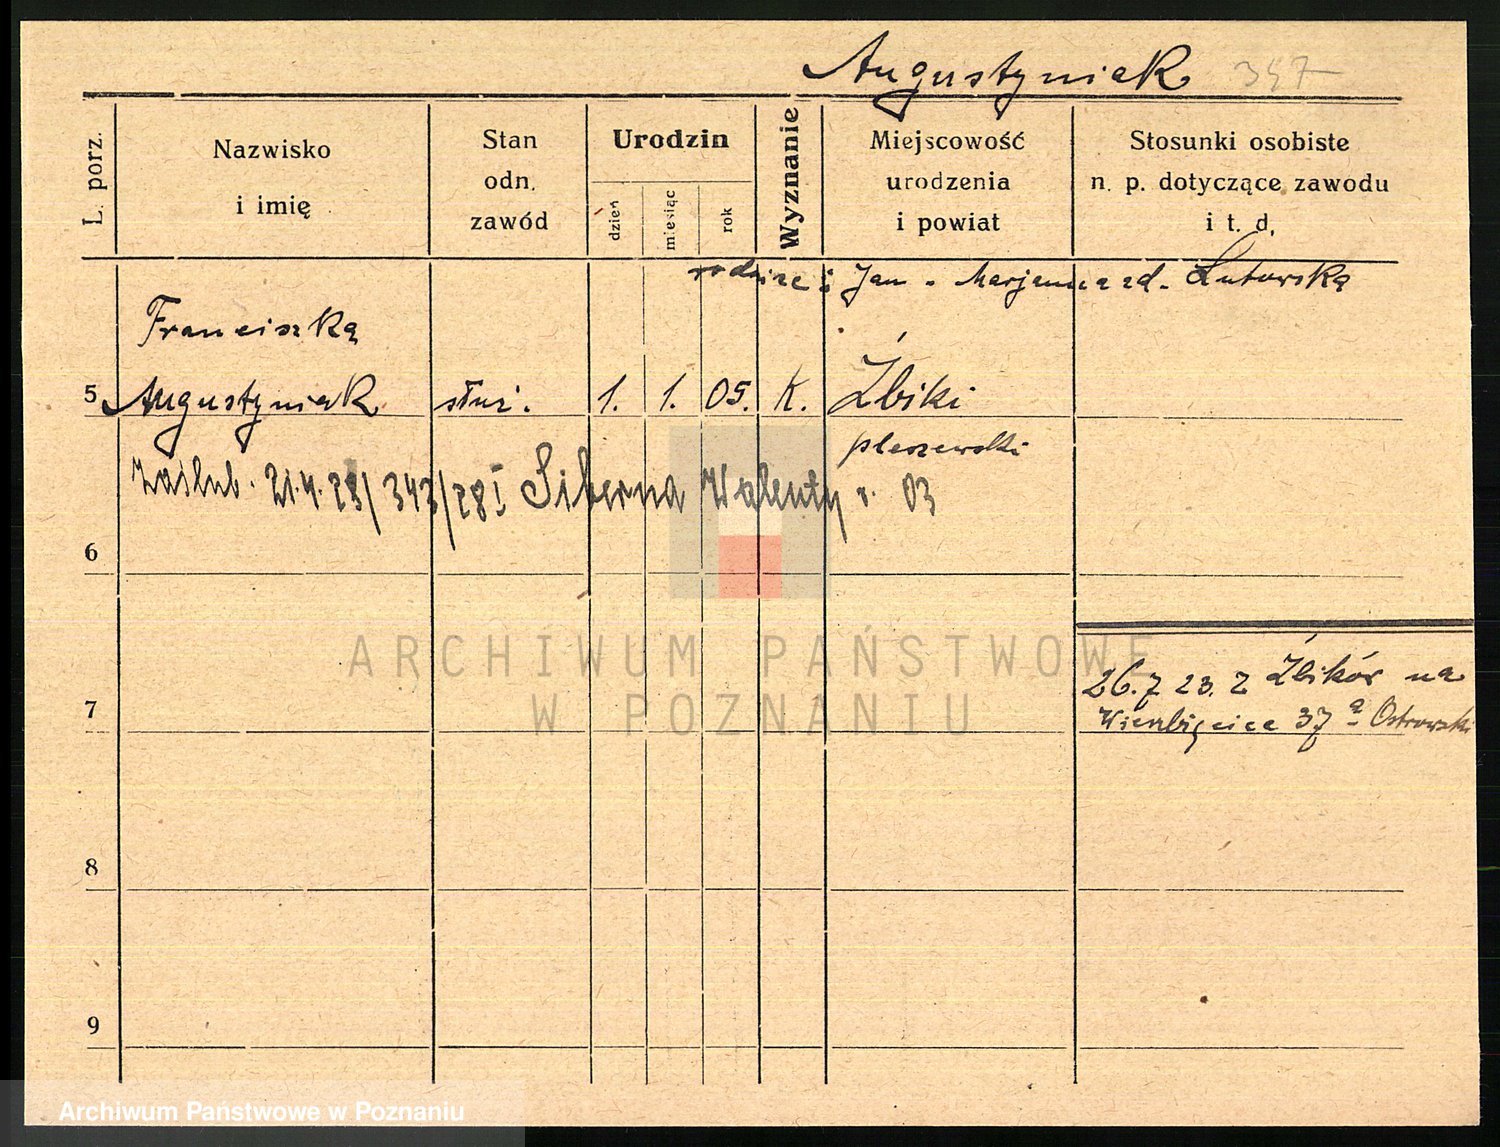 Augustyniak 347
L. porz.
Nazwisko
i imię
Stan
odn.
zawód
Urodzin
dzień
miesiąc
rok
Wyznanie
Miejscowość
urodzenia
i powiat
Stosunki osobiste
n. p. dotyczące zawodu
i t. d.
rodzice: Jan - Marjanna zd. Lutowską
Franciszką
5 Augustyniak służ. 1. 1. 05. K. Żbiki
pleszewski
Zaślub. 21.4.28/343/28 I Siberna Walenty r. 03
6
26.7 23. z Żbików na
7 Wierzbięcice 37 a Ostrowski
8
9
ARCHIWUM PAŃSTWOWE
W POZNANIU
Archiwum Państwowe w Poznaniu